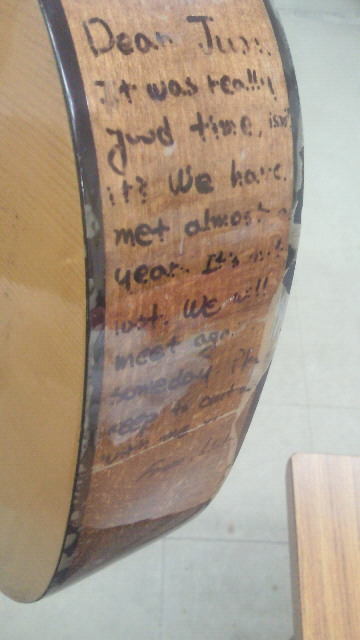 Dear Jun,
It was really
good time, isn't
it? We have
met almost a
year. It's not
last. We will
meet again
someday
keep
with me
From.